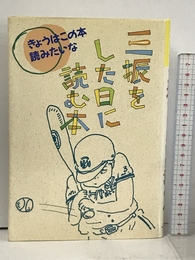 三振を
した日に
読む本
きょうはこの本
読みたいな